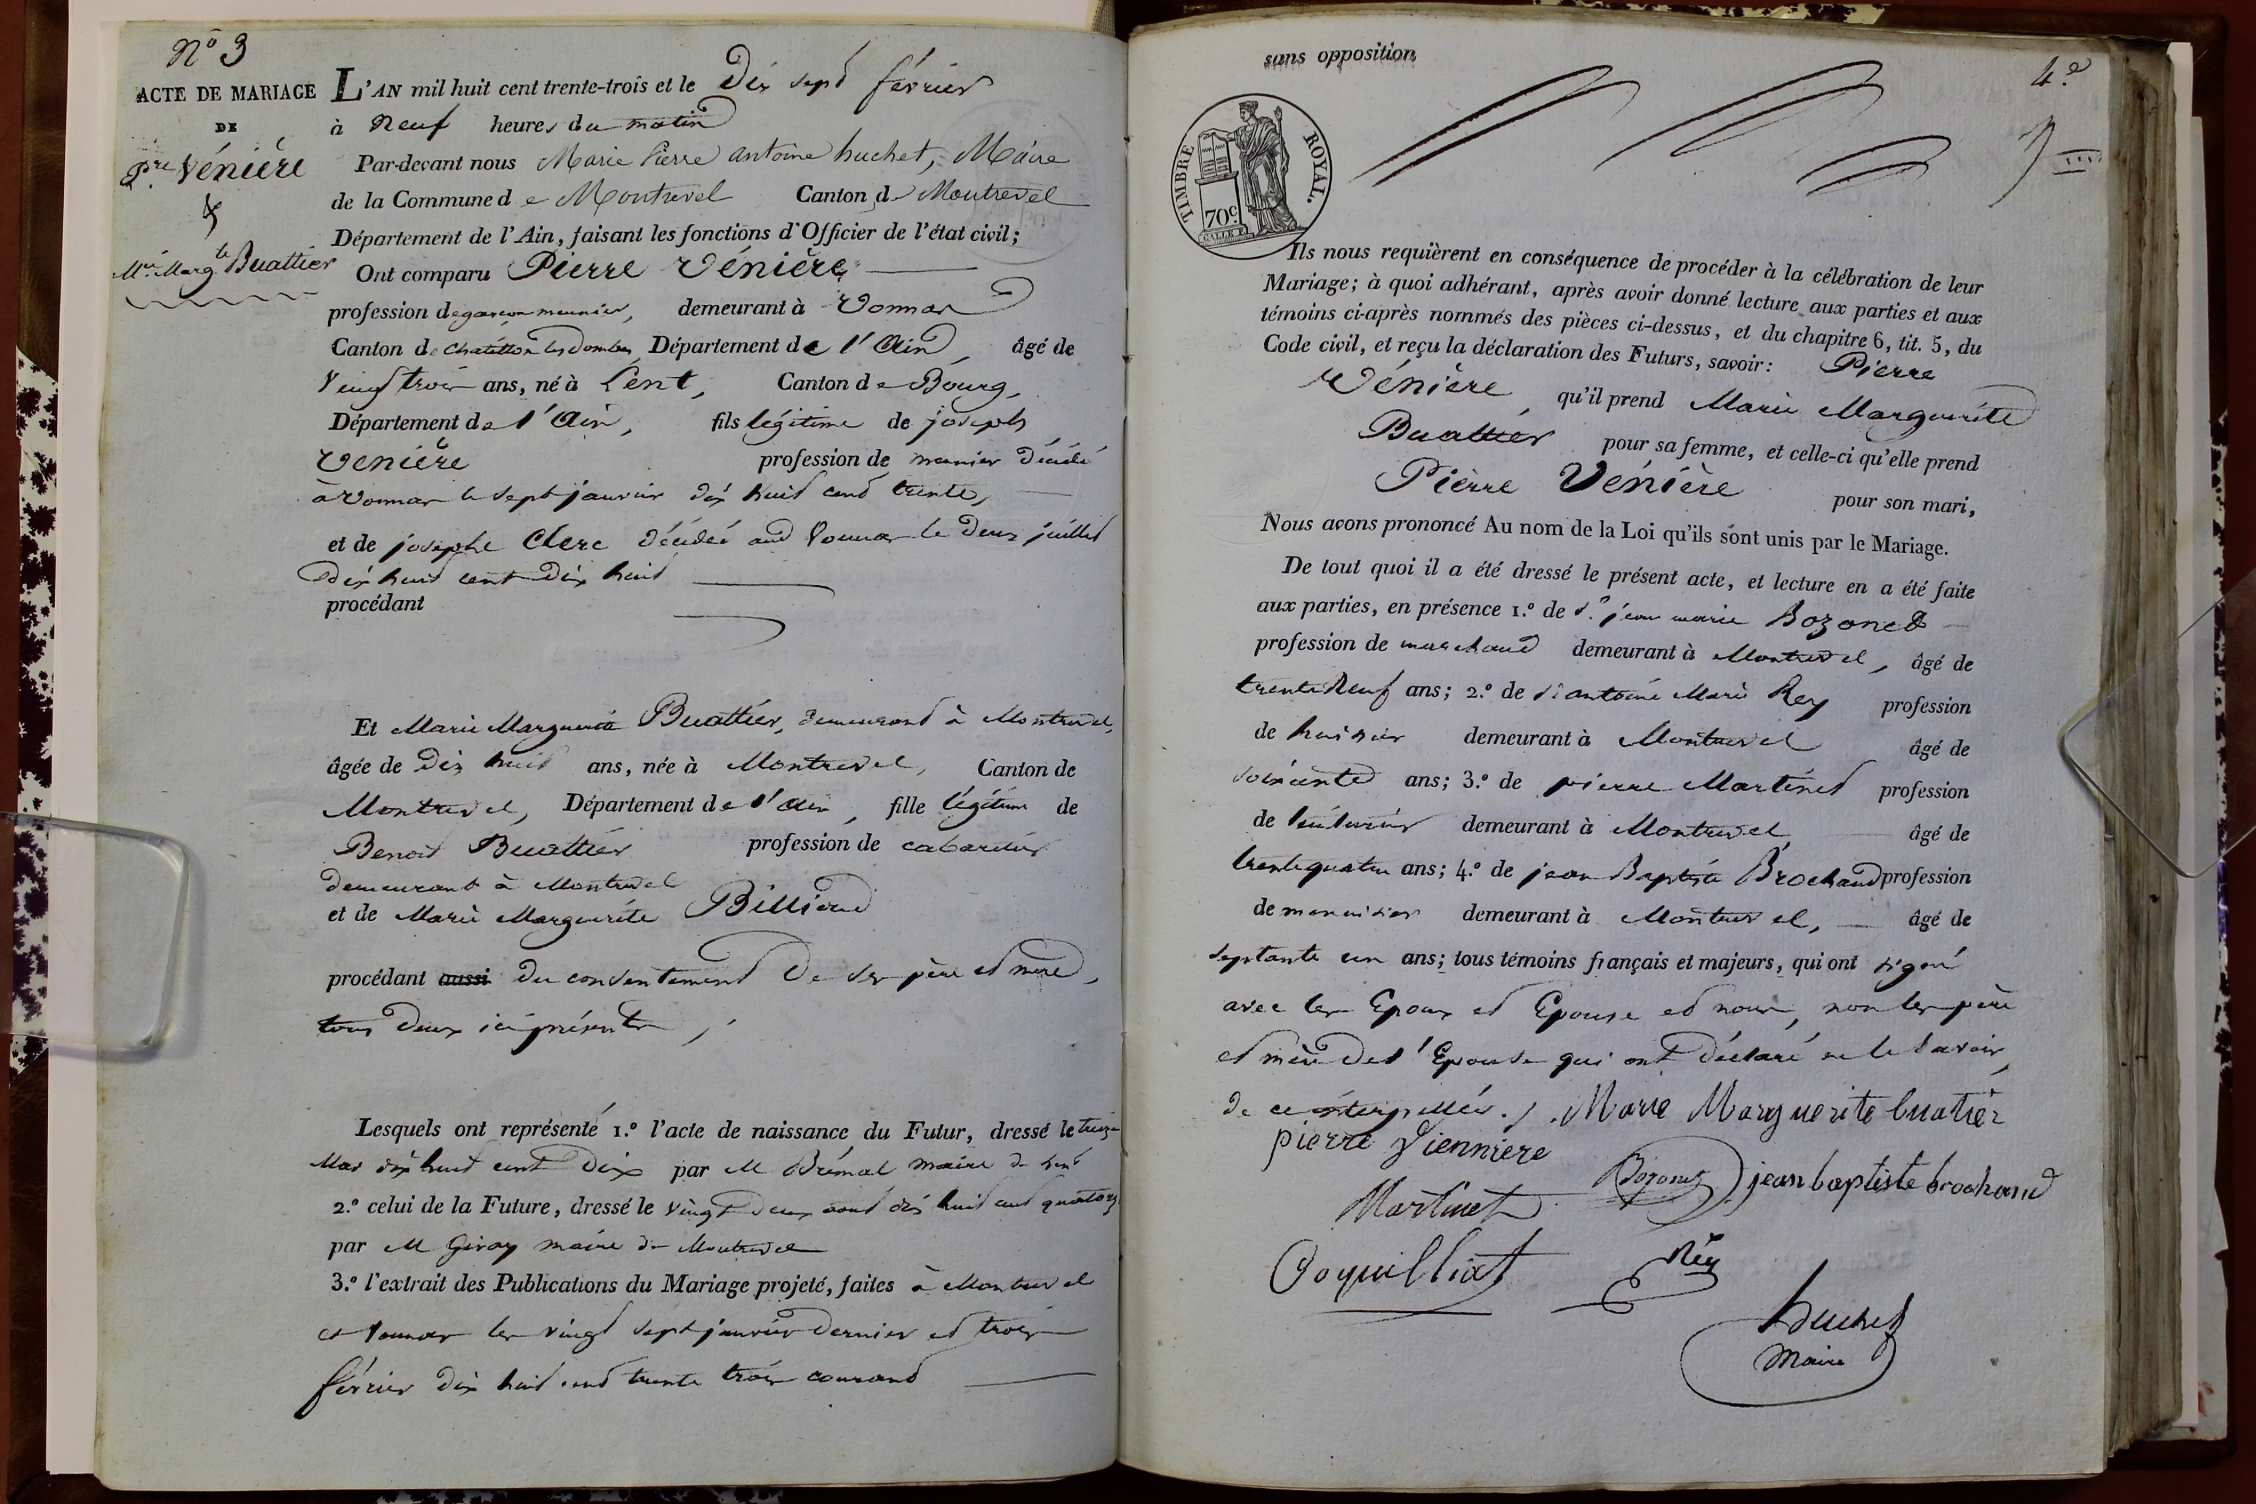 N.o 3
ACTE DE MARIAGE
DE
P.re Vénière
&
M.ie Marg.te Buattier
L'AN mil huit cent trente-trois et le Dix sept février
à Neuf heures du matin
Par-devant nous Marie Pierre antoine huchet, Maire
de la Commune de Montrevel Canton de Montrevel
Département de l'Ain, faisant les fonctions d'Officier de l'état civil;
Ont comparu Pierre Vénière
profession de garçon meunier, demeurant à Vonnas
Canton de Chatillon les Dombes Département de l'Ain, âgé de
Vingt trois ans, né à Lent, Canton de Bourg,
Département de l'Ain, fils légitime de joseph
Vénière profession de meunier décédé
à Vonnas le sept janvier dix huit cent trente,
et de josephe Clerc décédée aud Vonnas le Deux juillet
Dix huit cent dix huit
procédant
Et Marie Marguerite Buattier, demeurant à Montrevel,
âgée de Dix huit ans, née à Montrevel, Canton de
Montrevel, Département de l'Ain, fille légitime de
Benoit Buattier profession de cabaretier
demeurant à Montrevel
et de Marie Marguerite Billioud
procédant aussi du consentement de ses père et mère,
tous deux ici présents,
Lesquels ont représenté 1.o l'acte de naissance du Futur, dressé le treize
Mars dix huit cent Dix par M Brémal maire de Lent
2.o celui de la Future, dressé le Vingt deux aout dix huit cent quatorze
par M Giroy maire de Montrevel
3.o l'extrait des Publications du Mariage projeté, faites à Montrevel
et Vonnas les vingt sept janvier dernier et trois
février dix huit cent trente trois courant
sans opposition
4.e
TIMBRE ROYAL.
70c.
Ils nous requièrent en conséquence de procéder à la célébration de leur
Mariage; à quoi adhérant, après avoir donné lecture aux parties et aux
témoins ci-après nommés des pièces ci-dessus, et du chapitre 6, tit. 5, du
Code civil, et reçu la déclaration des Futurs, savoir: Pierre
Vénière, qu'il prend Marie Marguerite
Buattier pour sa femme, et celle-ci qu'elle prend
Pierre Vénière pour son mari,
Nous avons prononcé Au nom de la Loi qu'ils sont unis par le Mariage.
De tout quoi il a été dressé le présent acte, et lecture en a été faite
aux parties, en présence 1.o de S.r jean marie Bozonet
profession de marchand demeurant à Montrevel, âgé de
trente Neuf ans; 2.o de S.r antoine Marie Rey profession
de huissier demeurant à Montrevel âgé de
soixante ans; 3.o de pierre Martinet profession
de teinturier demeurant à Montrevel âgé de
trente quatre ans; 4.o de jean Baptiste Brochand profession
de menuisier demeurant à Montrevel, âgé de
septante un ans; tous témoins français et majeurs, qui ont signé
avec les Epoux et Epouse et nous, non les père
et mère de l'Epouse qui ont déclaré ne le savoir,
de ce interpellés. Marie Marguerite buatier
pierre Vienniere
Bozonet jean baptiste brochand
Martinet
Coquilliat
Rey
huchet
Maire